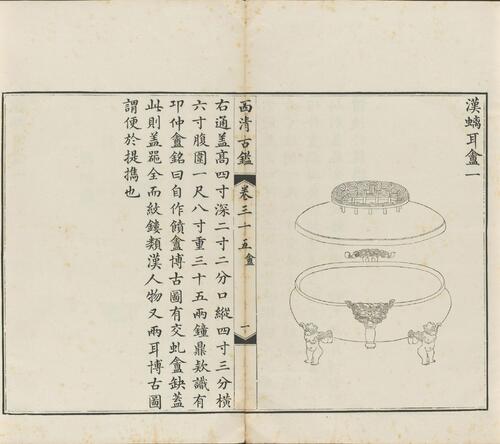 漢螭耳奩一
西清古鑑
卷三十五 奩
一
右通蓋高四寸深二寸二分口縱四寸三分橫
六寸腹圍一尺八寸重三十五兩鐘鼎欵識有
卭仲奩銘曰自作饙奩博古圖有交虬奩缺蓋
此則蓋噐全而紋鏤類漢人物又兩耳博古圖
謂便於提攜也